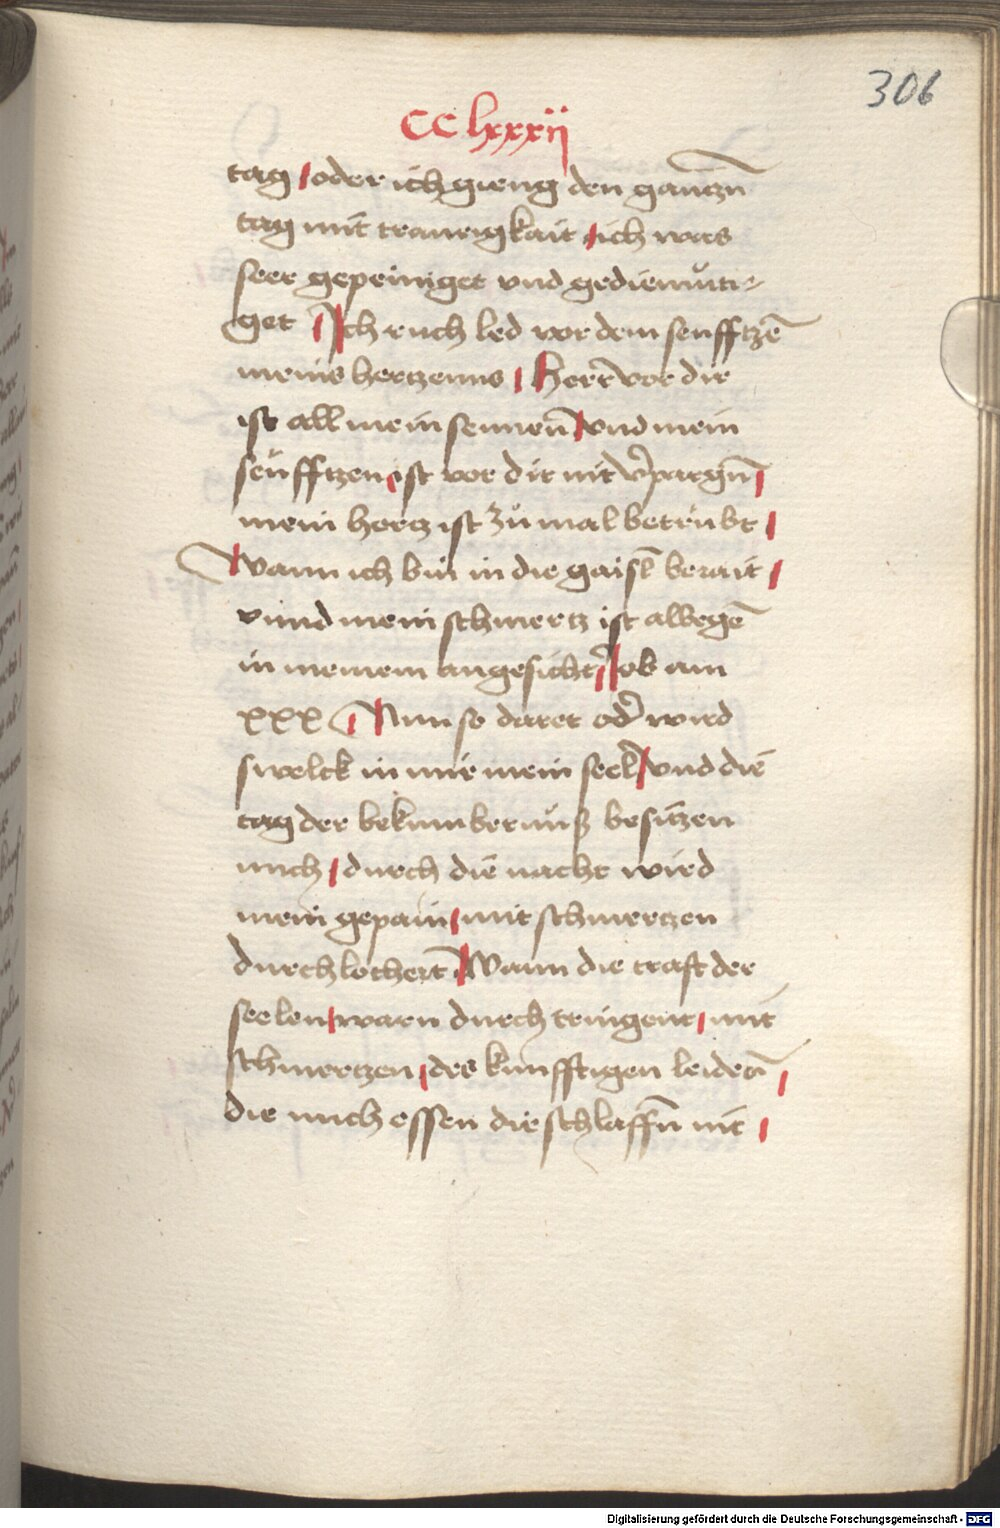 306
CClxxxij
tag oder ich gieng den ganczn̄
tag mit traurigkait ich was
seer gepeiniget vnd gediemuͤti-
get Ich ruch led vor dem seufftzē
meins hertzenns Herr vor dir
ist all mein sennen̄ vnd mein
seüfftzen ist vor dir nit v̄pargn̄
mein hertz ist zuͦ mal betruͤbt
Wann ich bin in die gaisl̄ berait
vnnd mein schmertz ist albegē
in meinem angesicht Job am
xxx Nun so daret od̄ wird
swelck in mir mein seel vnd die
tag der bekumbernuͤß besitzen
mich durch die nacht wird
mein gepain mit schmertzen
durchlochert Wann die craft der
seelen warn durch tringent mit
schmertzen des kunfftigen leiden̄
die mich essen die schlaffn̄ nit
Digitalisierung gefördert durch die Deutsche Forschungsgemeinschaft - DFG